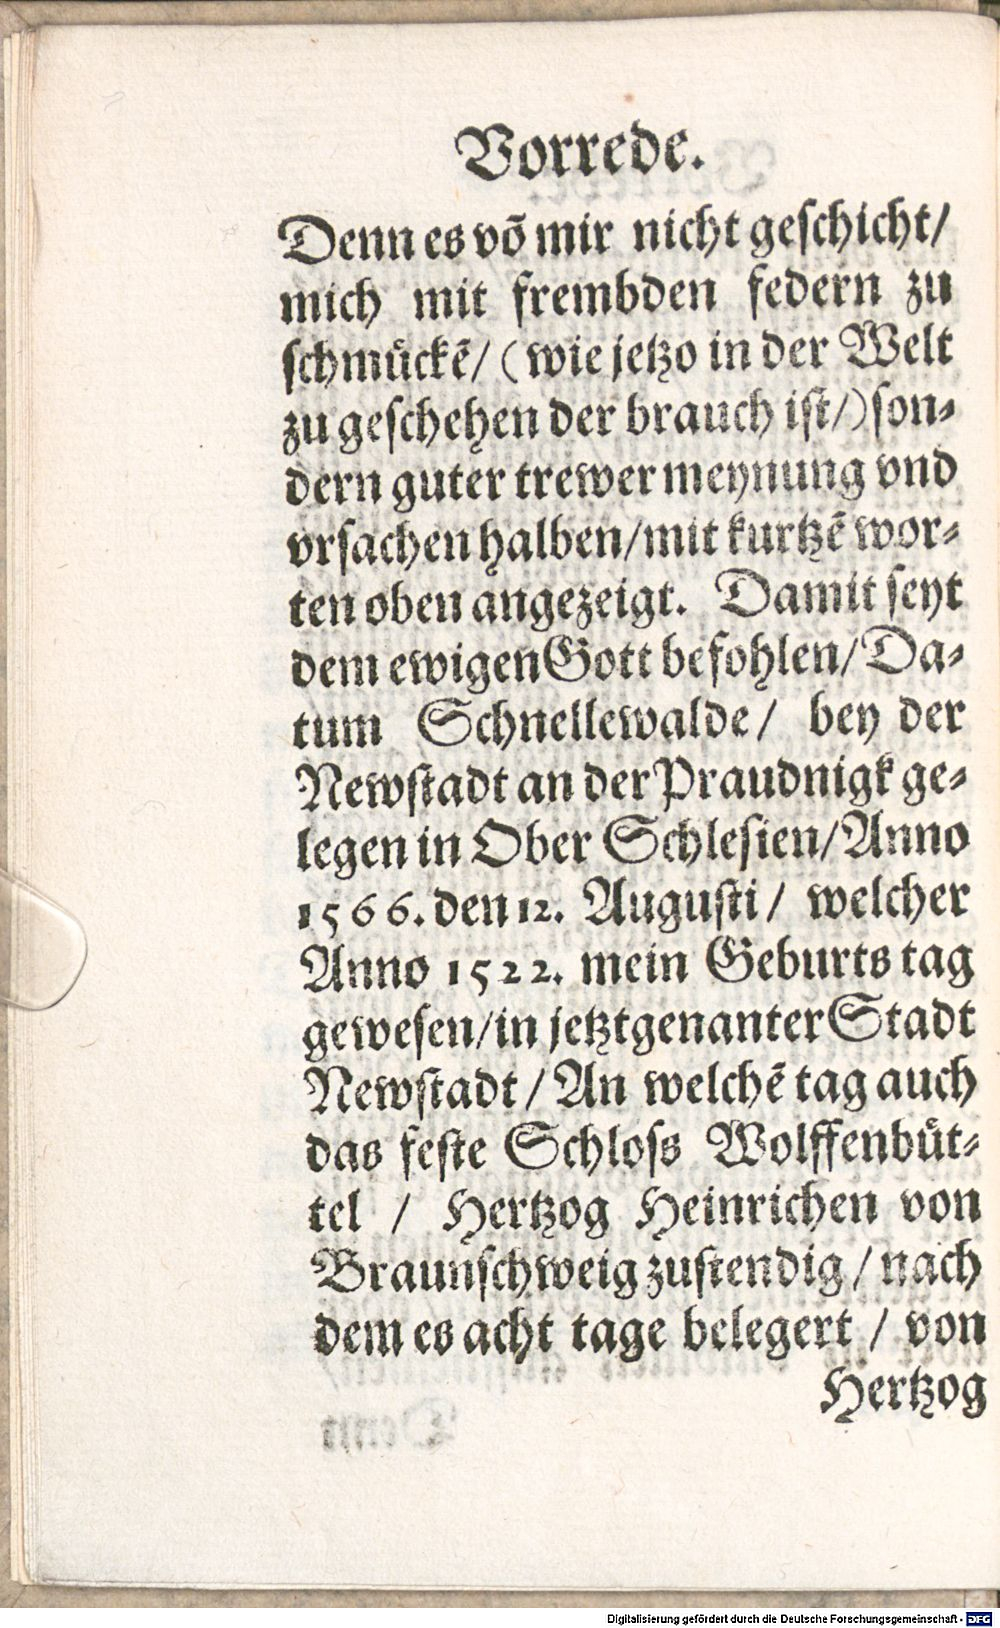 Vorrede.
Denn es võ mir nicht geſchicht/
mich mit frembden federn zu
ſchmuͤckẽ/ (wie jetzo in der Welt
zu geſchehen der brauch iſt/) ſon⸗
dern guter trewer meynung vnd
vrſachen halben/mit kurtzẽ wor⸗
ten oben angezeigt. Damit ſeyt
dem ewigen Gott befohlen/ Da⸗
tum Schnellewalde/ bey der
Newſtadt an der Praudnigk ge⸗
legen in Ober Schleſien/Anno
1566. den 12. Auguſti/ welcher
Anno 1522. mein Geburts tag
geweſen/in jetztgenanter Stadt
Newſtadt/ An welchẽ tag auch
das feſte Schloſs Wolffenbuͤt⸗
tel / Hertzog Heinrichen von
Braunſchweig zuſtendig/ nach
dem es acht tage belegert / von
Hertzog
Digitalisierung gefördert durch die Deutsche Forschungsgemeinschaft - DFG